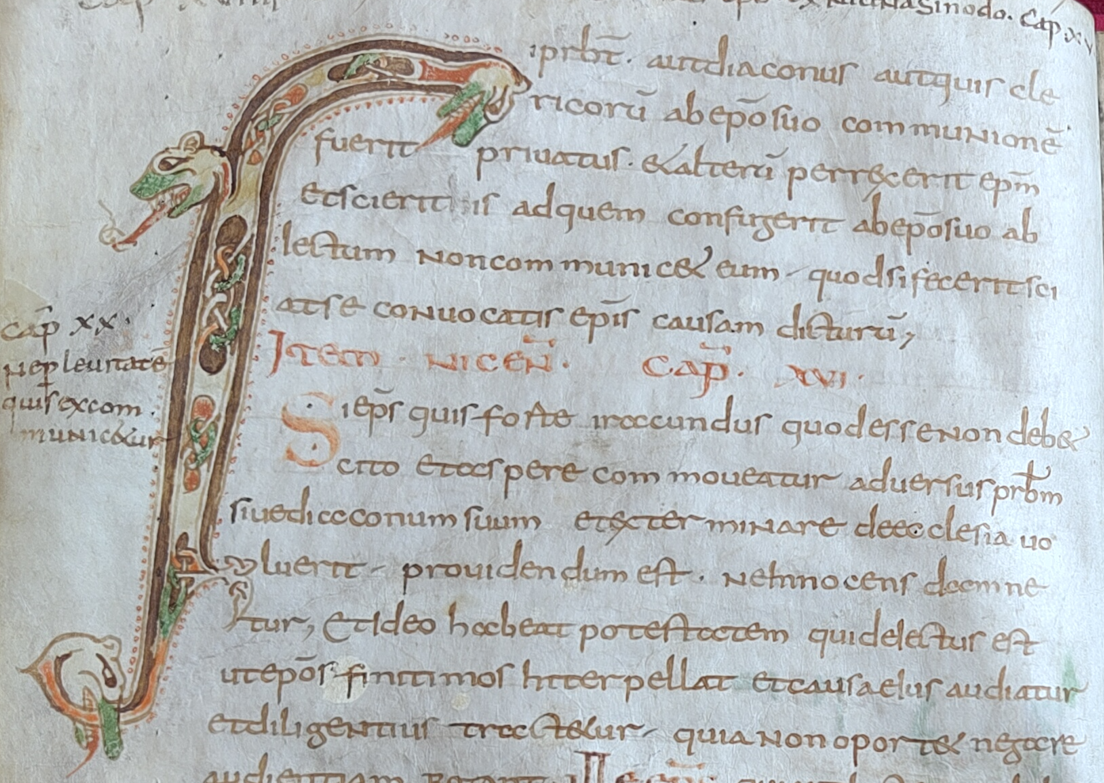 ex Nicena Sinodo. Cap̄ xv
Si prb̄t. aut diaconus aut quis cle
ricorū ab ep̄o suo communionē
fuerit priuatus. & alterū perrexerit ep̄m
et scierit is ad quem confugerit ab ep̄o suo ab
lectum non communicet eum. quod si fecerit sci
at se conuocatis ep̄is causam dicturū;
Item Nicen̄. Cap̄. XVI.
Si ep̄s quis forte iracundus quod esse non deb&
cito et aspere commoueatur aduersus prb̄m
siue diaconum suum et exterminare de ecclesia uo
luerit. prouidendum est. ne innocens damne
tur; Et ideo habeat potestatem qui delectus est
ut ep̄os finitimos interpellat et causa eius audiatur
et diligentius tractetur. quia non oport& negare
audientiam
Cap̄ xx.
Ne p̱ leuitate
quis excom
munic&ur